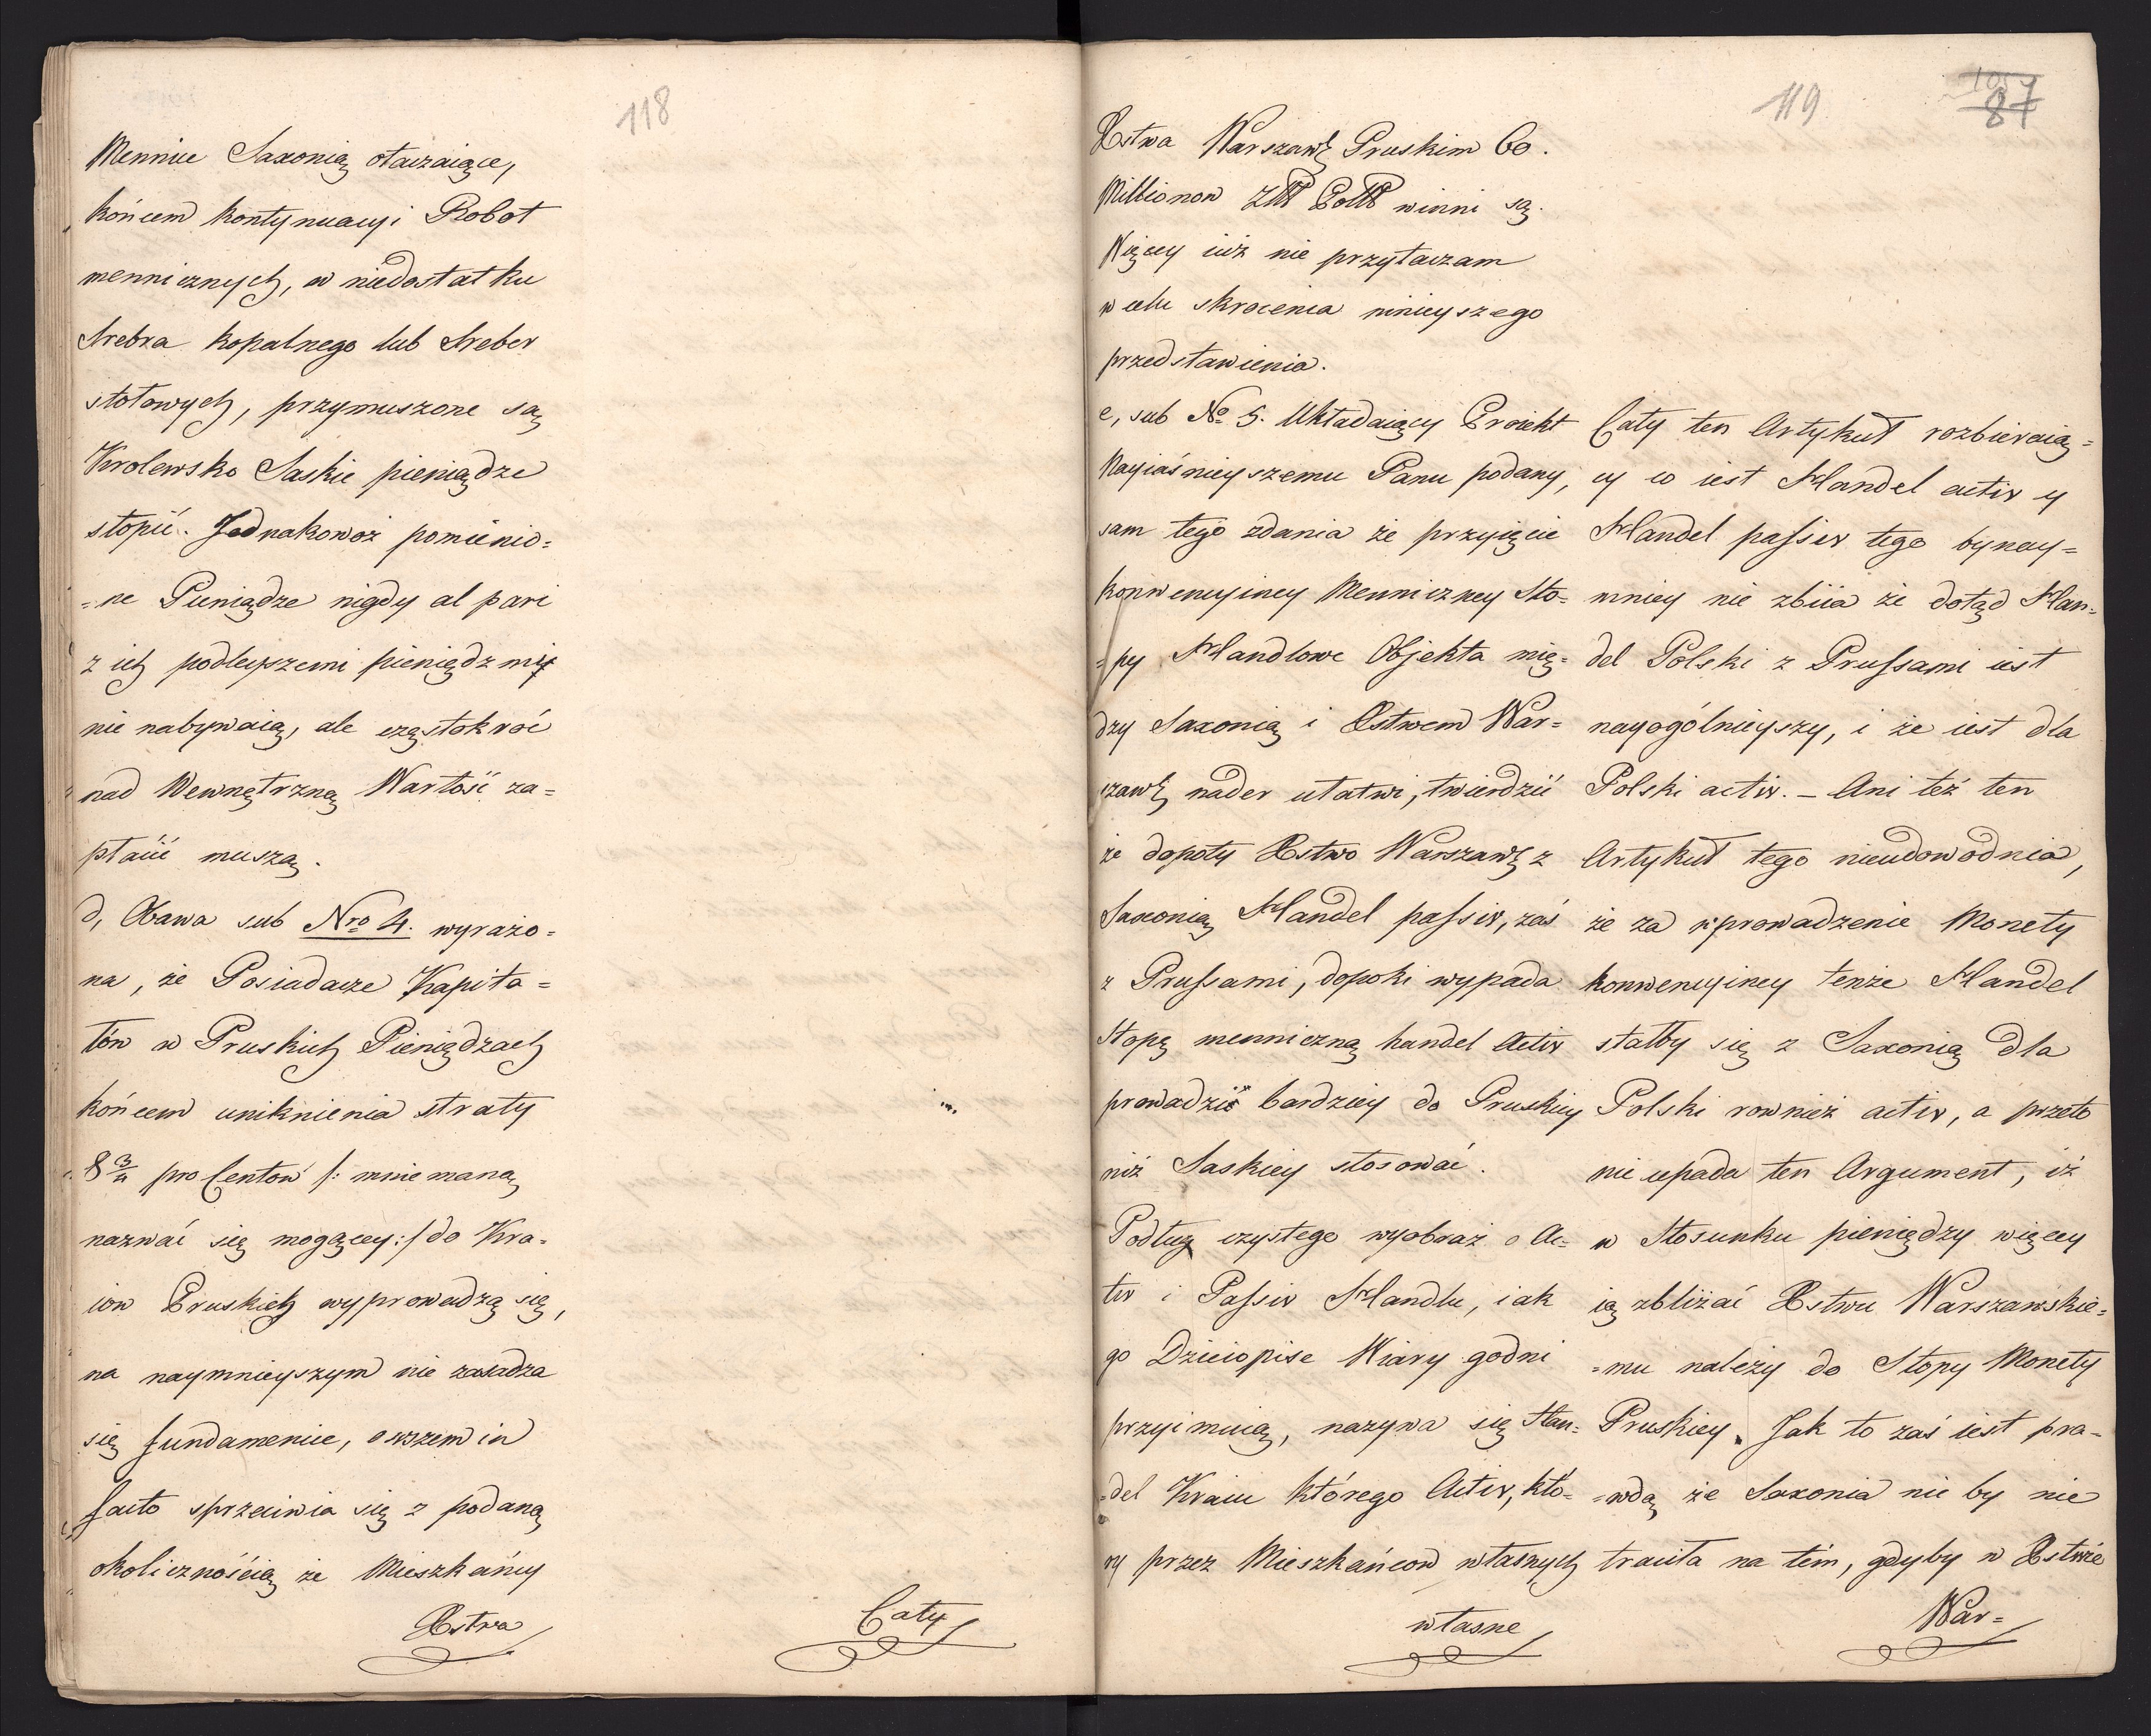 118
Mennice Saxonią otaczaiące,
końcem kontynuacyi Robot
mennicznych, w niedostatku
Srebra kopalnego lub Sreber
stołowych, przymuszone są
Krolewsko Saskie pieniądze
stopić. Jednakowoż pomienio=
=ne Pieniądze nigdy al pari
z ich podleyszemi pieniędzmi
nie nabywaią, ale częstokroć
nad Wewnętrzną Wartość za=
płacić muszą.
d, Obawa sub Nro 4. wyrażo=
na, że Posiadacze Kapita=
łów w Pruskich Pieniądzach
końcem uniknienia straty
8 3/4 pro Centow /: mniemaną
nazwać się mogącey :/ do Kra=
iow Pruskich wyprowadzą się,
na naymnieyszym nie zasadza
się fundamencie, owszem in
facto sprzeciwia się z podaną
okolicznością że Mieszkańcy
Xstwa
Cały
119
87
Xstwa Warszaw. Pruskim 60.
Millionow Złł Poll winni są.
Więcey iuż nie przytaczam
w celu skrocenia ninieyszego
przedstawienia.
e, sub No 5. Układaiący Proiekt
Nayiaśnieyszemu Panu podany,
sam tego zdania że przyięcie
konwencyiney Menniczney Sto=
=py Handlowe Objekta mię=
dzy Saxonią i Xstwem War=
szaw. nader ułatwi, twierdzić
że dopoty Xstwo Warszaw. z
Saxonią Handel passiv, zaś
z Prussami, dopoki wypada
Stopę menniczną handel Activ
prowadzić bardziey do Pruskiey
niż Saskiey stosować.
Podług czystego wyobraż o Ac=
tiv i Passiv Handlu, iak
go Dzieiopise Wiary godni
przyimuią, nazywa się Han=
=del Kraiu którego Activ, któ=
ry przez Mieszkańcow własnych
własne
Cały ten Artykuł rozbieraią=
cy co iest Handel activ y
Handel passiv tego bynay=
mniey nie zbiia że dotąd Han=
del Polski z Prussami iest
nayogólnieyszy, i że iest dla
Polski activ. – Ani też ten
Artykuł tego nieudowodnia,
że za wprowadzenie Monety
konwencyiney tenże Handel
stałby się z Saxonią dla
Polski rownież activ, a przeto
nie upada ten Argument, iż
w Stosunku pieniędzy więcey
ią zbliżać Xstwu Warszawskie=
=mu należy do Stopy Monety
Pruskiey. Jak to zaś iest pra=
=wdą że Saxonia nie by nie
traciła na tém, gdyby w Xstwie
War=